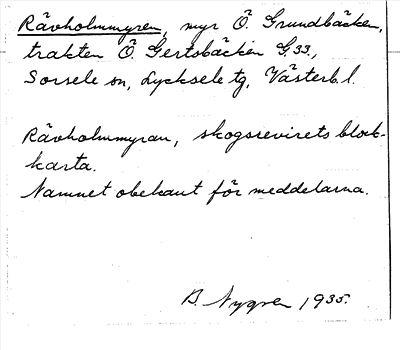 Rävholmmyren, myr Ö. Grundbäcken,
trakten Ö. Gertsbäcken G33,
Sorsele sn, Lycksele tg, Västerb. l.
Rävholmmyran, skogsrevirets block-
karta.
Namnet obekant för meddelarna.
B. Nygren 1935.